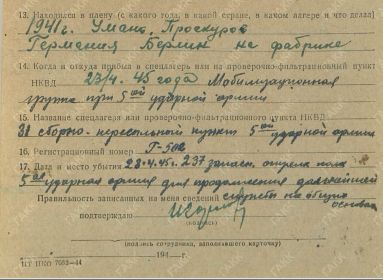 13. Находился в плену (с какого года, в какой стране, в каком лагере и что делал)
1941 г. Умань, Проскуров
Германия Берлин на фабрике
14. Когда и откуда прибыл в спецлагерь или на проверочно-фильтрационный пункт
НКВД 23/4-45 года Мобилизационная
группа при 5ой ударной армии
15. Название спецлагеря или проверочно-фильтрационного пункта НКВД
сборно-пересыльный пункт 5ой ударной армии
16. Регистрационный номер Г-502
17. Дата и место убытия 28.4.45г. 237 запасн. стрелк полк
5ая ударная армия для продолжения дальнейшей
Правильность записанных на меня сведений службы на общих
подтверждаю основан
(подпись)
(подпись сотрудника, заполнившего карточку)
194 г.